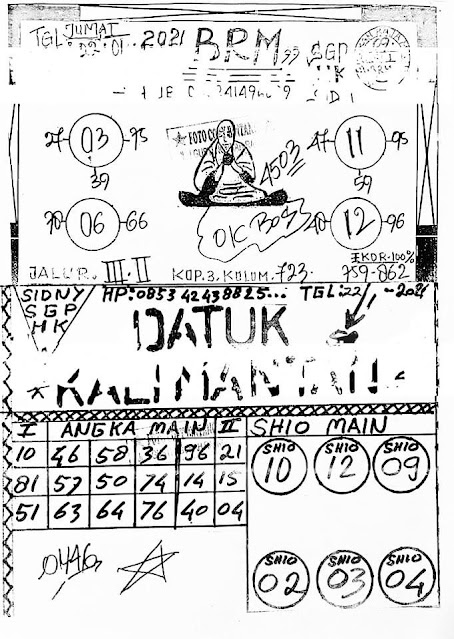 TGL: JUMAT
22·01...2021 BRM 99 SGP
HK
27 03 95
39
47 11 95
59
4503
70 06 66
OK BOS
20 12 96
JALUR. III·II KOP. 3. KOLOM. 723. IEKOR·100%
759-862
SIDNY HP:0853 4243 8825... TGL:22/1-2021
SGP
HK
DATUK
KALIMANTAN
I ANGKA MAIN II SHIO MAIN
10 46 58 36 96 21
81 57 50 74 14 15
51 63 64 76 40 04
SHIO 10 SHIO 12 SHIO 09
SHIO 02 SHIO 03 SHIO 04
0446